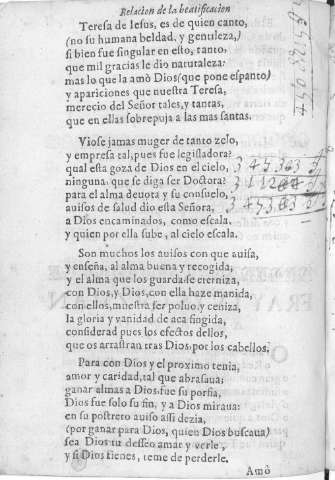 Relacion de la beatificacion
Teresa de Iesus, es de quien canto,
(no su humana beldad, y genuleza,)
si bien fue singular en esto, tanto,
que mil gracias le dio naturaleza:
mas lo que la amò Dios (que pone espanto)
y apariciones que nuestra Teresa,
merecio del Señor tales, y tantas,
que en ellas sobrepuja a las mas santas.
Viose jamas muger de tanto zelo,
y empresa tal, pues fue legisladora?
qual esta goza de Dios en el cielo,
ninguna que se diga ser Doctora?
para el alma deuota y su consuelo,
auisos de salud dio esta Señora,
a Dios encaminados, como escala,
y quien por ella sube, al cielo escala.
Son muchos los auisos con que auisa,
y enseña, al alma buena y recogida,
y el alma que los guarda se eterniza,
con Dios, y Dios, con ella haze manida,
con ellos, muestra ser poluo, y ceniza,
la gloria y vanidad de aca fingida,
considerad pues los efectos dellos,
que os arrastran tras Dios, por los cabellos.
Para con Dios y el proximo tenia,
amor y caridad, tal que abrasaua:
ganar almas a Dios fue su porfia,
Dios fue solo su fin, y a Dios miraua:
en su postrero auiso assi dezia,
(por ganar para Dios, quien Dios buscaua)
sea Dios tu desseo amar y verle,
y si Dios tienes, teme de perderle.
Amò